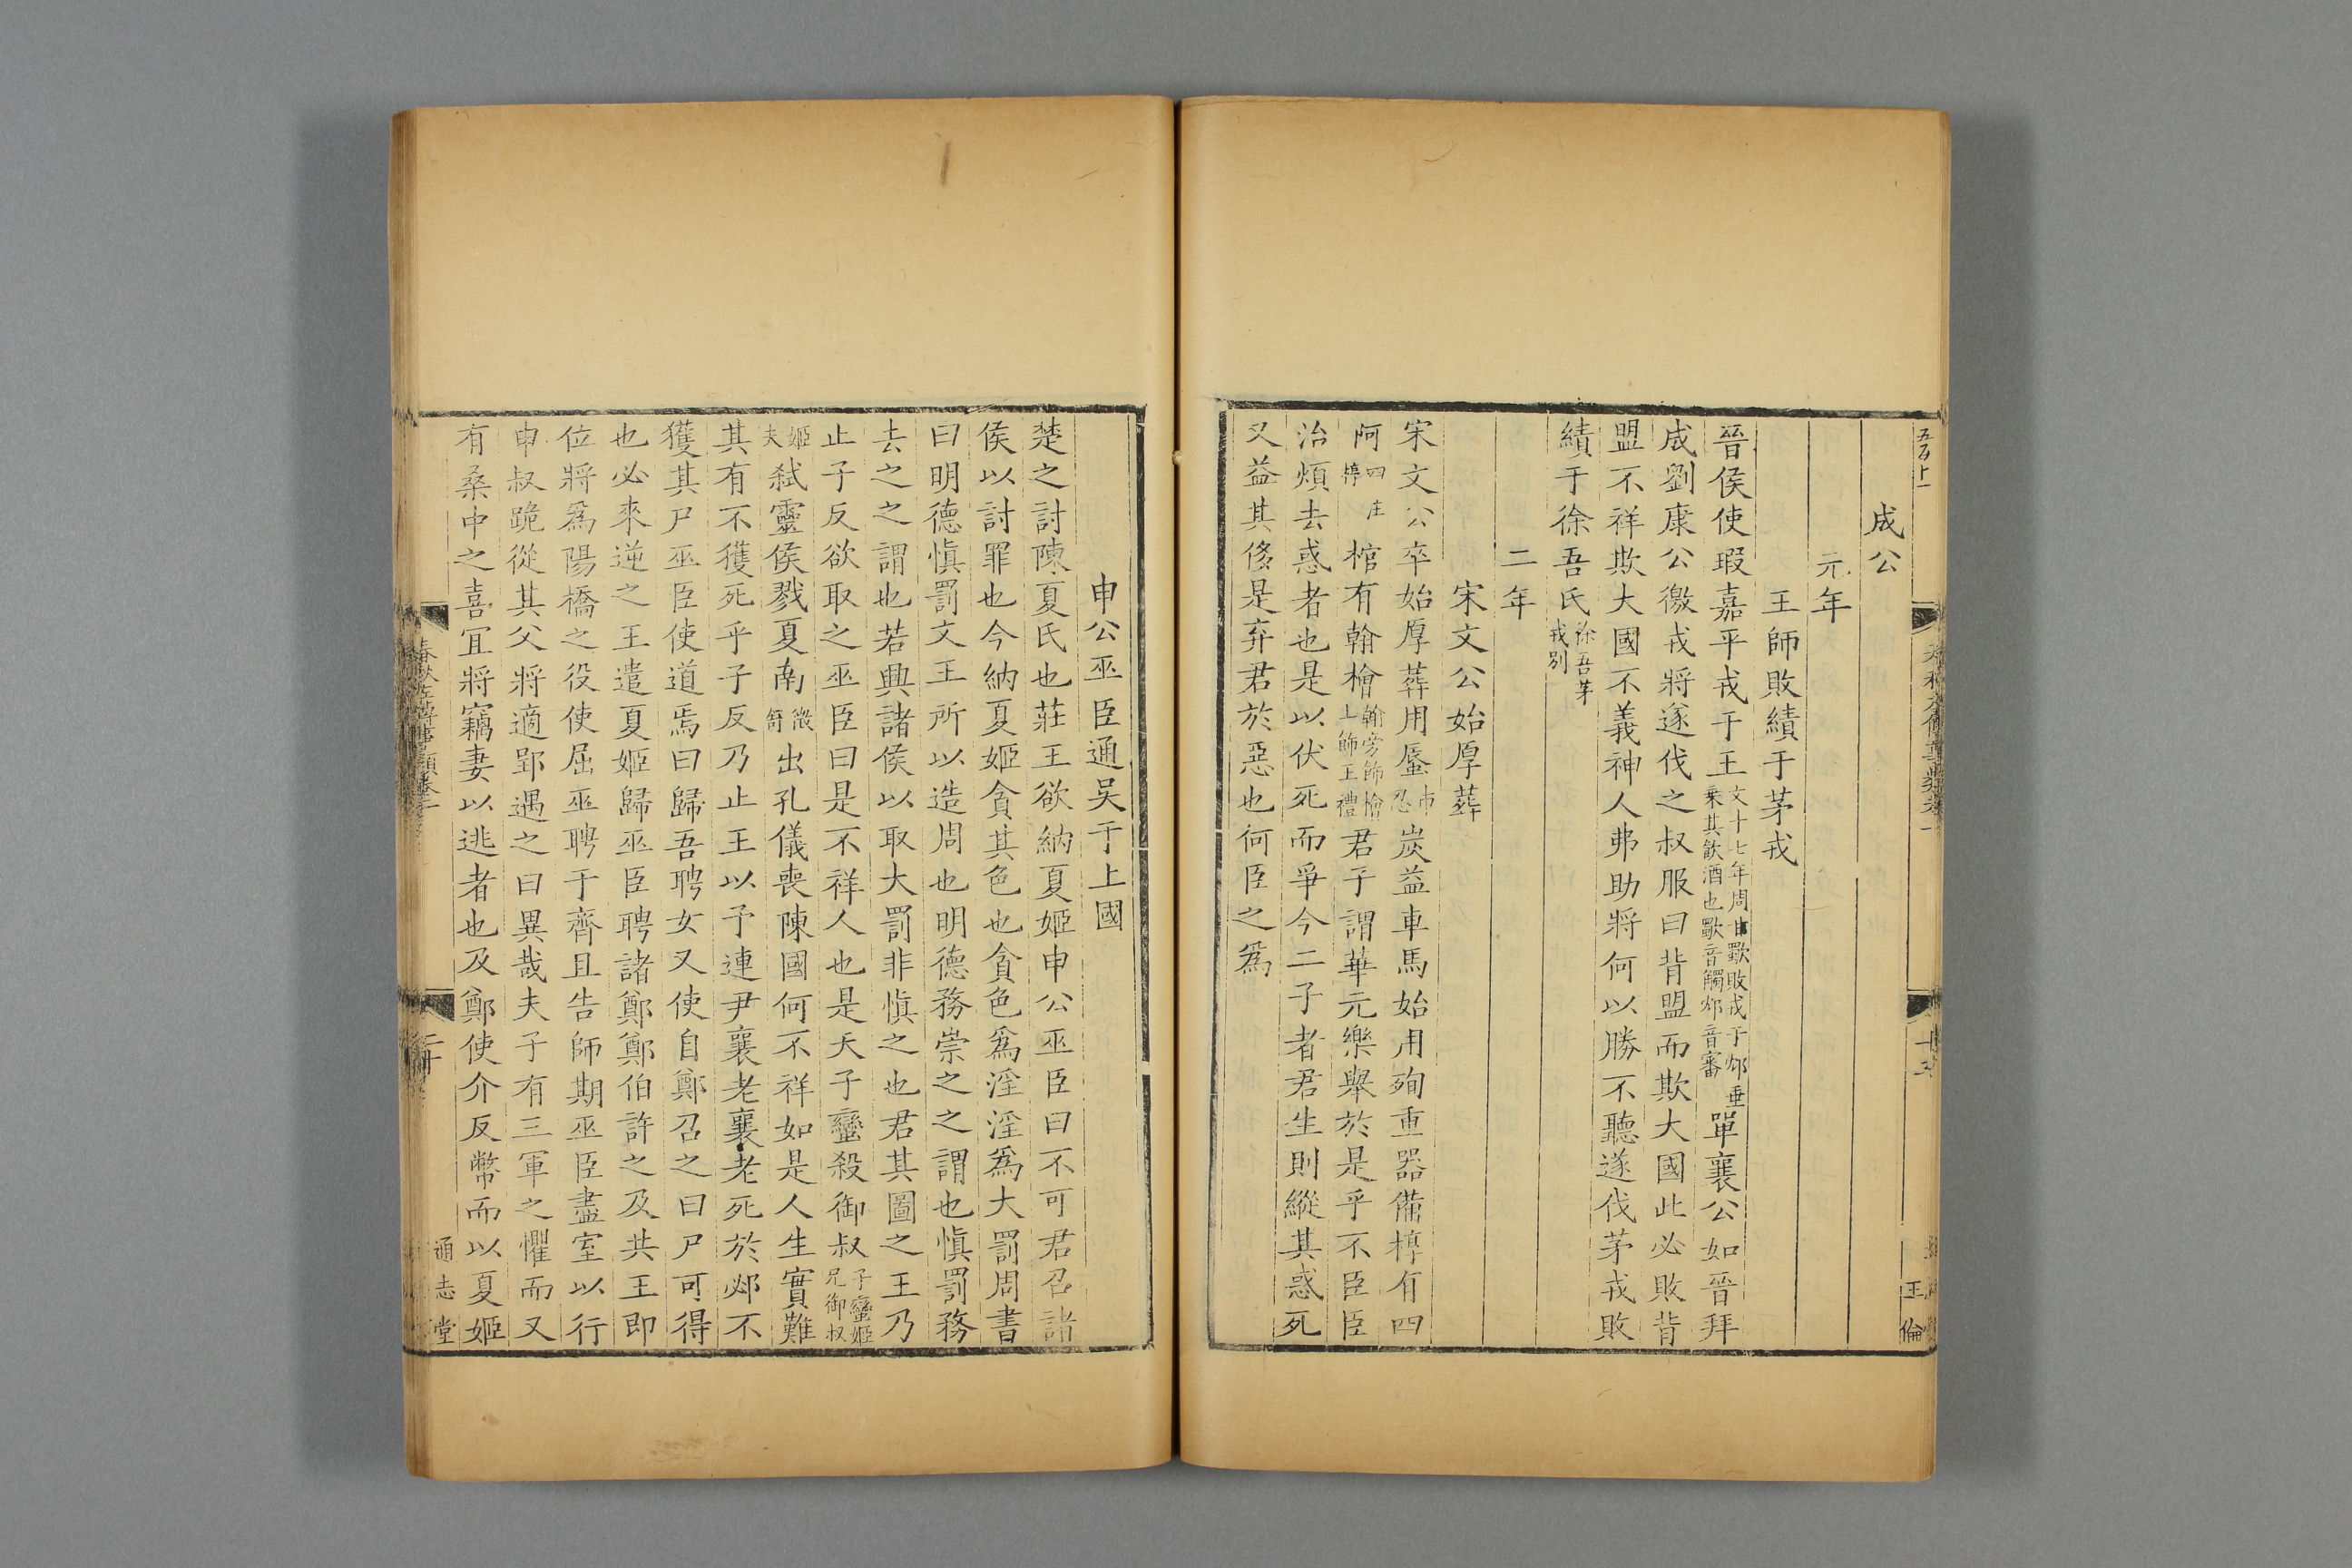 成公
元年
王師敗績于茅戎
晉侯使瑕嘉平戎于王文十七年周甘歜敗戎于邥垂乗其飲酒也歜音觸邥音審單襄公如晉拜
成劉康公徼戎將遂伐之叔服曰背盟而欺大國此必敗背
盟不祥欺大國不義神人弗助將何以勝不聽遂伐茅戎敗
績于徐吾氏徐吾茅戎别
二年
宋文公始厚葬
宋文公卒始厚葬用蜃市忍炭益車馬始用殉重器備椁有四
阿四注椁棺有翰檜翰旁飾檜上飾王禮君子謂華元樂舉於是乎不臣臣
治煩去惑者也是以伏死而爭今二子者君生則縱其惑死
又益其侈是弃君於惡也何臣之爲
王倫
申公巫臣通吴于上國
楚之討陳夏氏也莊王欲納夏姬申公巫臣曰不可君召諸
侯以討罪也今納夏姬貪其色也貪色爲淫淫爲大罰周書
曰明德慎罰文王所以造周也明德務崇之之謂也慎罰務
去之之謂也若興諸侯以取大罰非慎之也君其圖之王乃
止子反欲取之巫臣曰是不祥人也是夭子蠻殺御叔子蠻姬兄御叔
姬夫弑靈侯戮夏南徵舒出孔儀喪陳國何不祥如是人生實難
其有不獲死乎子反乃止王以予連尹襄老襄老死於邲不
獲其尸巫臣使道焉曰歸吾聘女又使自鄭召之曰尸可得
也必來逆之王遣夏姬歸巫臣聘諸鄭鄭伯許之及共王即
位將爲陽橋之役使屈巫聘于齊且告師期巫臣盡室以行
申叔跪從其父將適郢遇之曰異哉夫子有三軍之懼而又
有桑中之喜宜將竊妻以逃者也及鄭使介反幣而以夏姬
通志堂